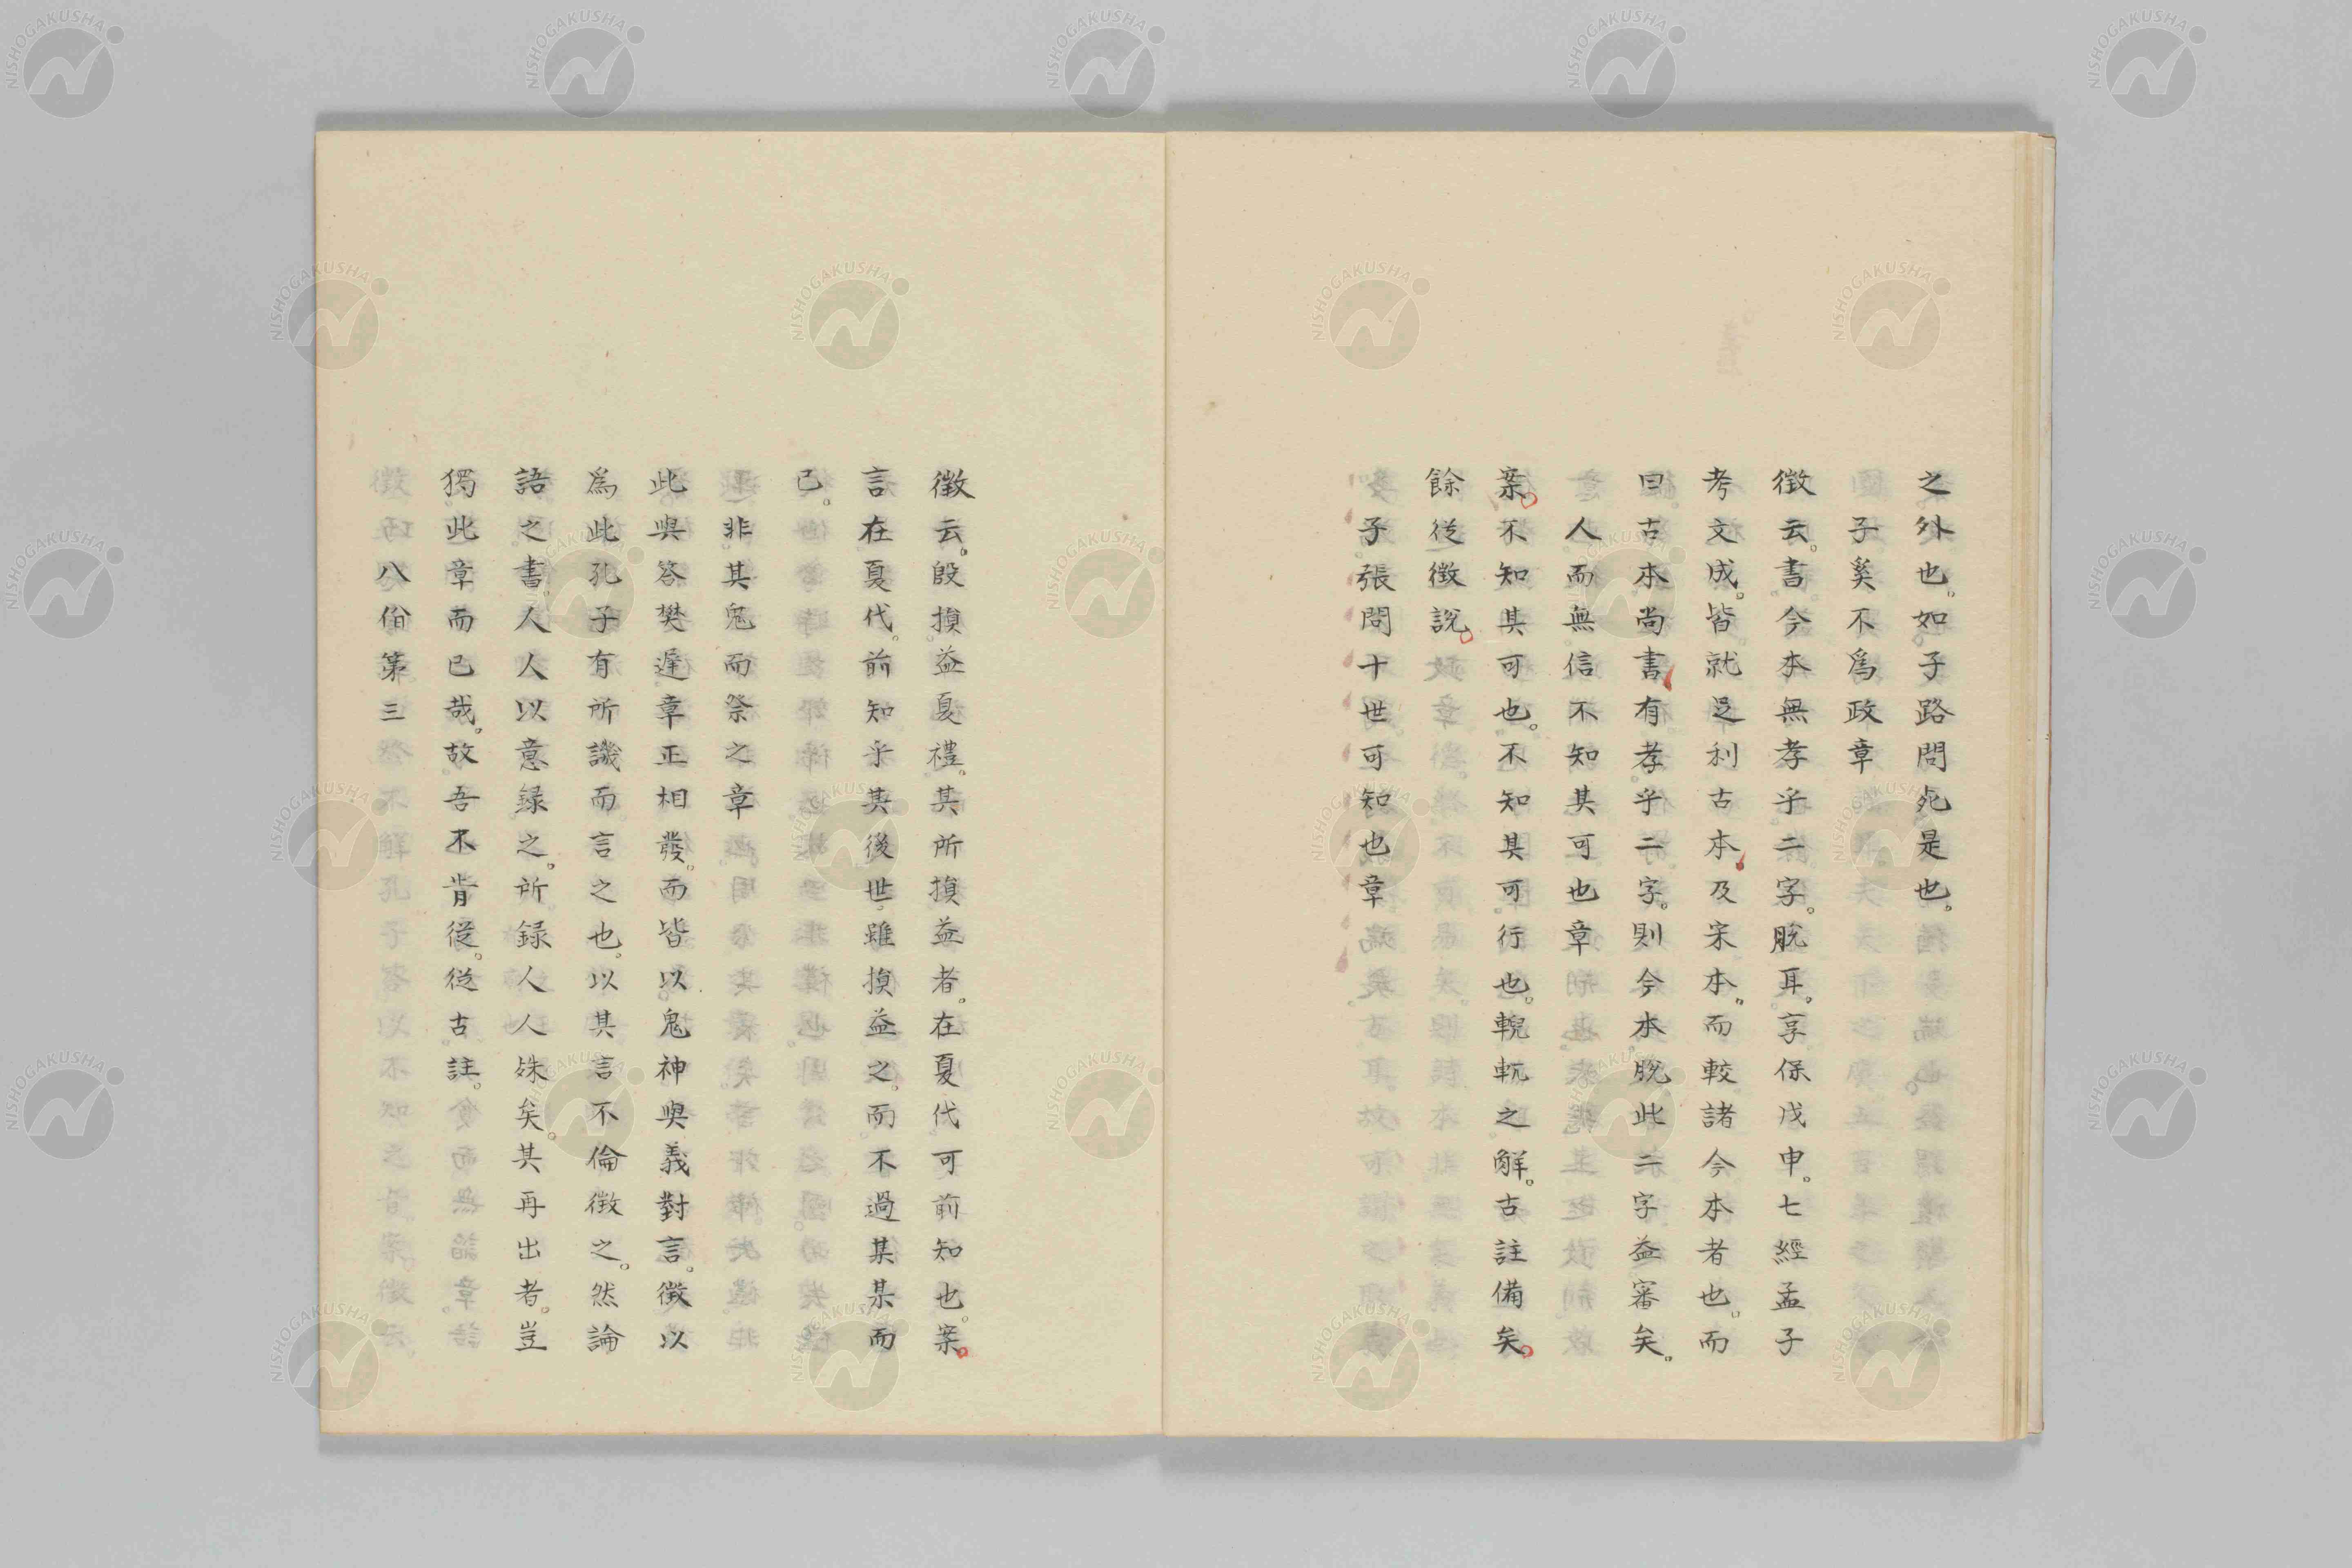 之外也。如子路問死是也。
子奚不爲政章
徴云。書今本無孝乎二字。脫耳。享保戊申。七經孟子
考文成。皆就足利古本。及宋本。而較諸今本者也。而
曰古本尚書有孝乎二字。則今本脫此二字益審矣。
人而無信不知其可也章
案。不知其可也。不知其可行也。輗軏之解。古註備矣。
餘從徴說。
子張問十世可知也章
徴云。殷損益夏禮。其所損益者。在夏代可前知也。案。
言在夏代。前知乎其後世雖損益之。而不過某某而
已。
非其鬼而祭之章
此與答樊遲章正相發。而皆以鬼神與義對言。徴以
爲此孔子有所譏而言之也。以其言不倫徴之。然論
語之書。人人以意録之。所録人人姝矣。其再出者。豈
獨此章而已哉。故吾不肯從。從古註。
八佾第三
NISHOGAKUSHA